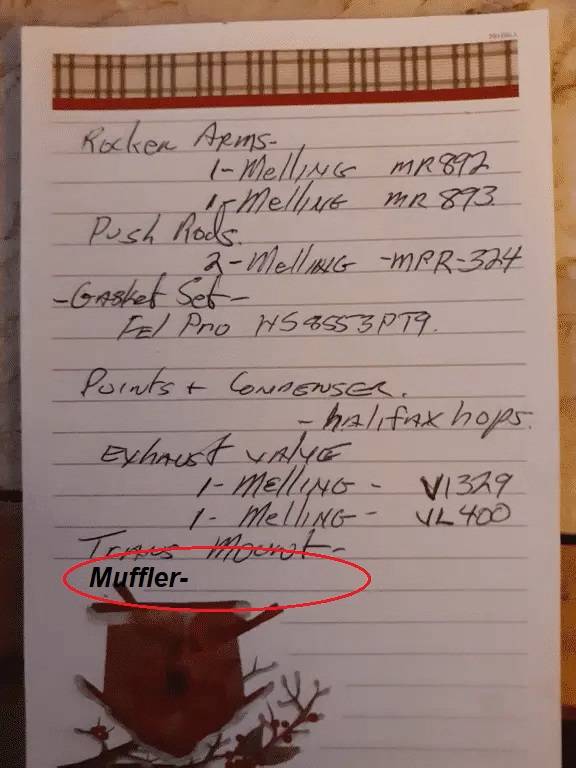 Rocker Arms-
1-Melling MR892
1-Melling MR893.
Push Rods.
2-Melling -MPR-324
-Gasket Set-
Fel Pro HS8553PT9.
Points + Condenser.
-halifax hops.
Exhaust valve
1-Melling- V1329
1-Melling- VL400
Trans Mount-
Muffler-